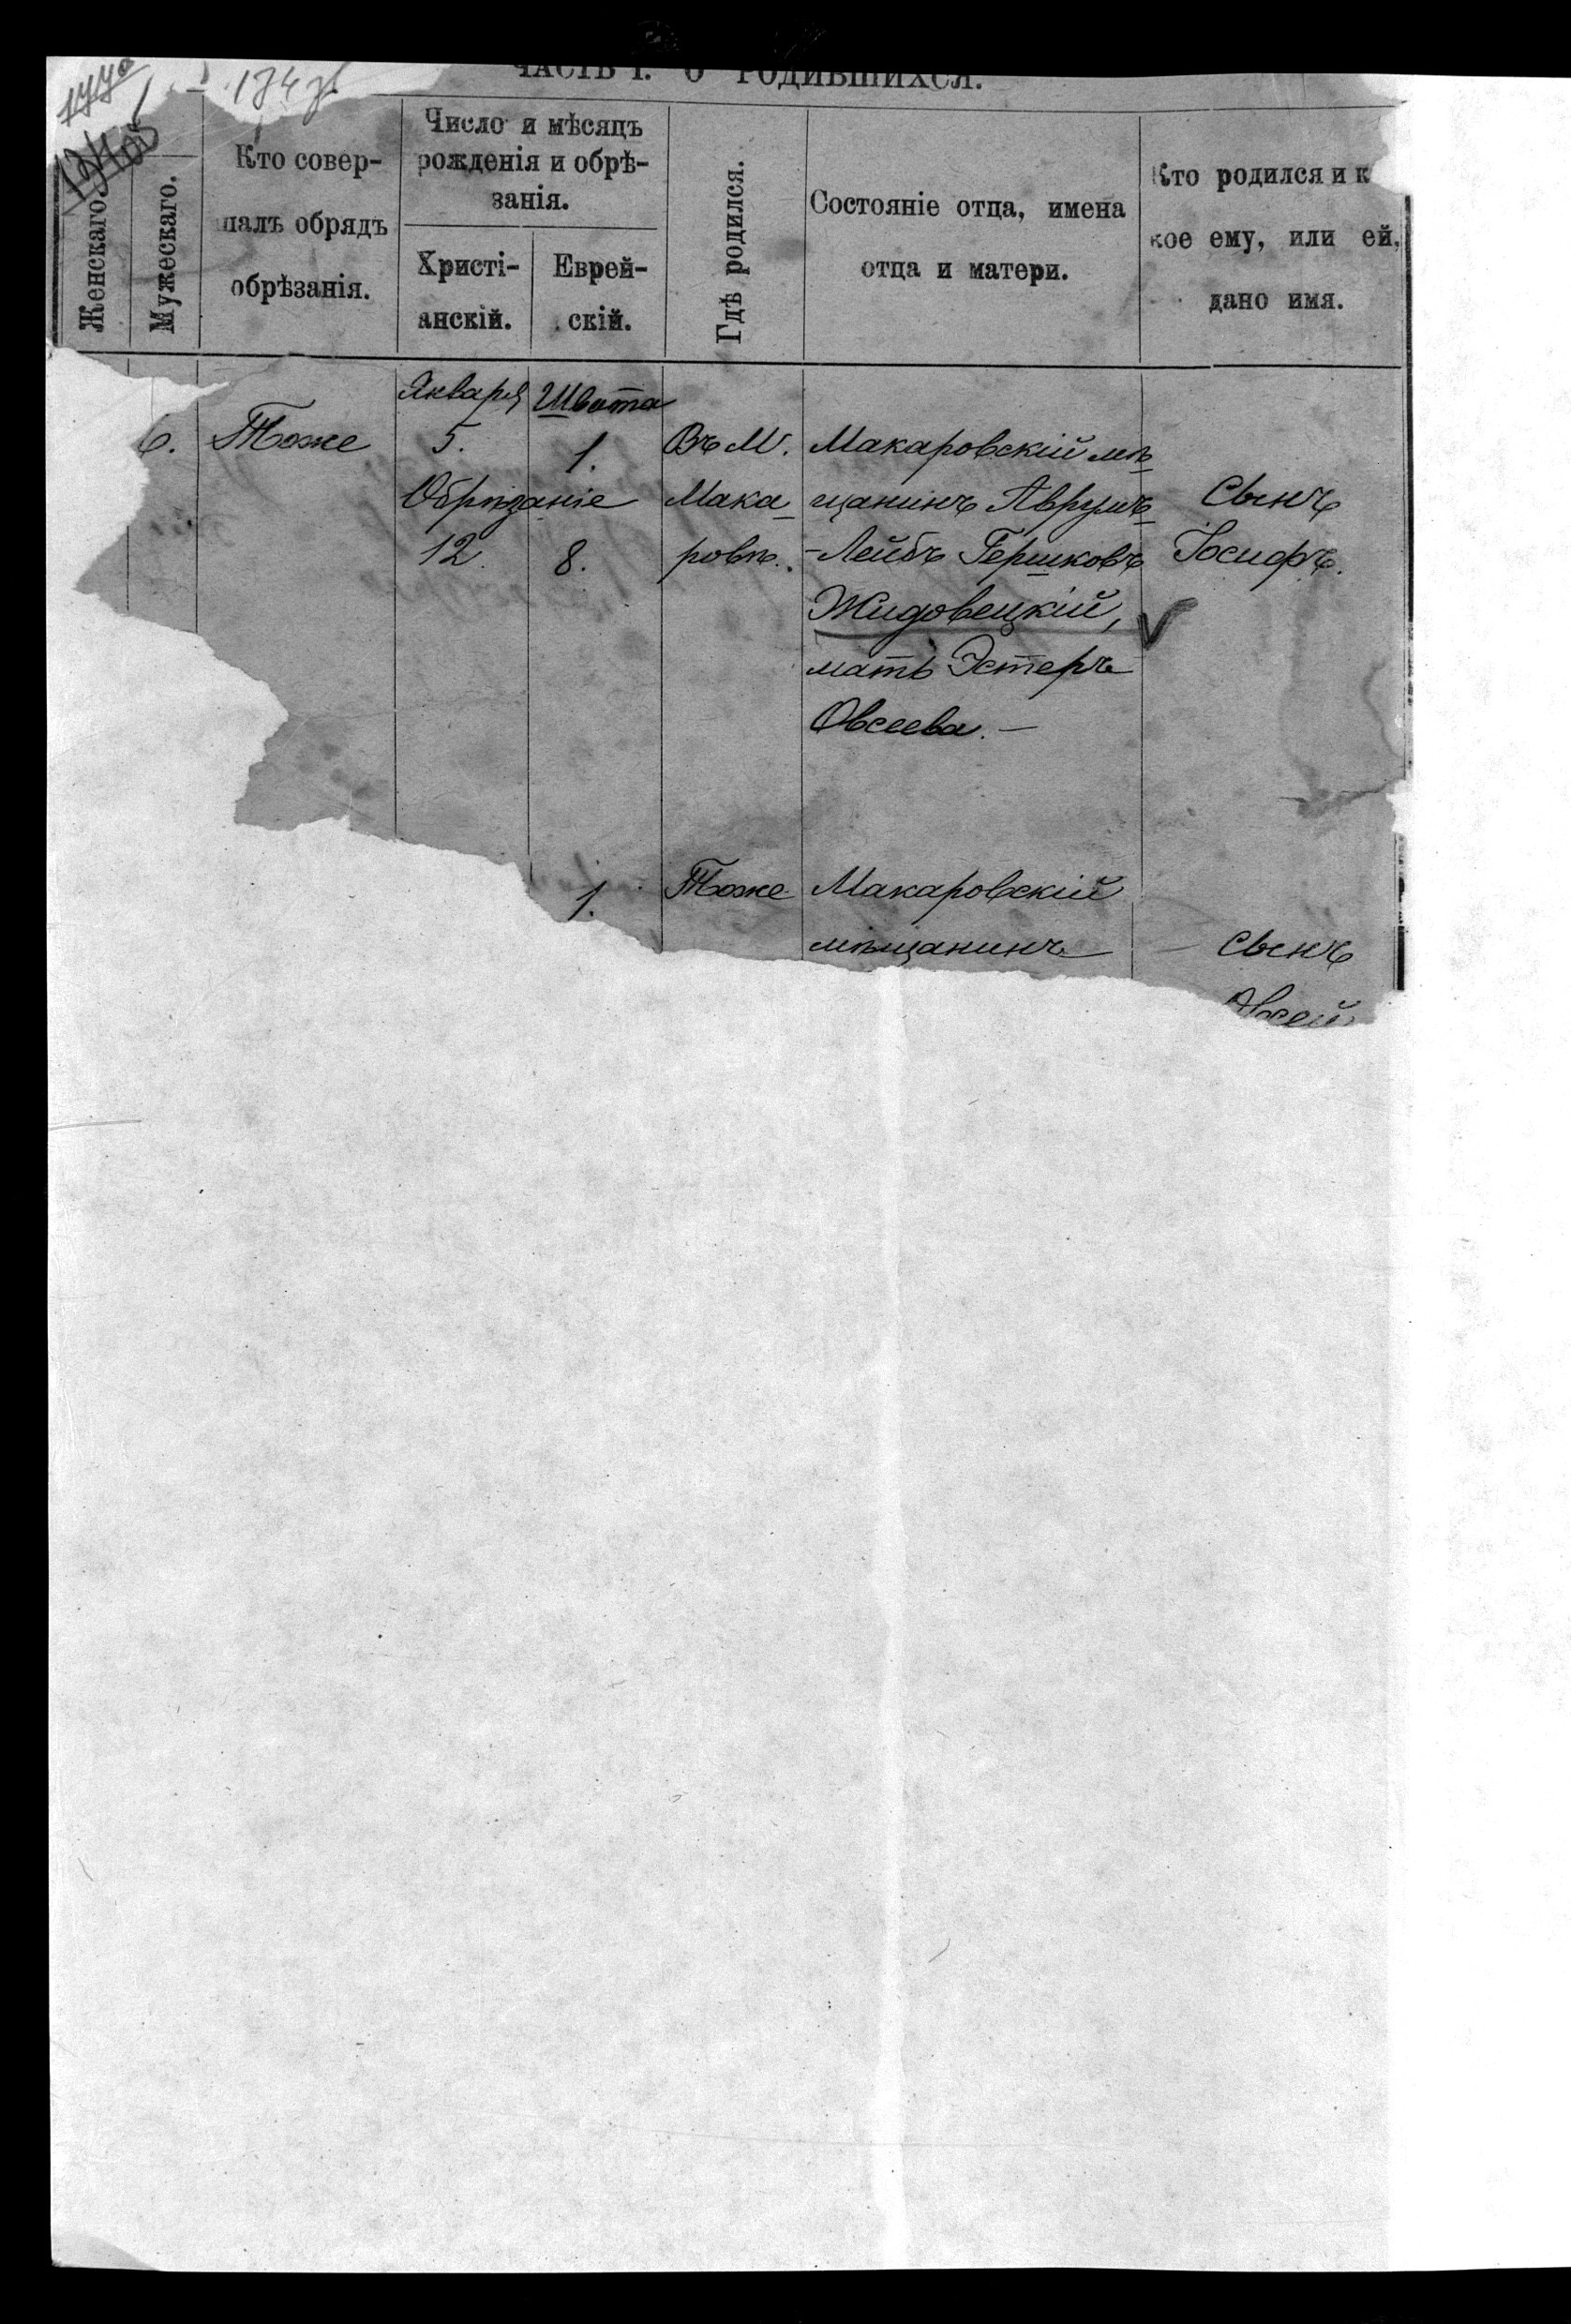 ЧАСТЬ I. О РОДИВШИХСЯ.
174 г.
Женскаго
Мужескаго.
Кто совер-
шалъ обрядъ
обрѣзанія.
Число и мѣсяцъ
рожденія и обрѣ-
занія.
Христі-
анскій.
Еврей-
скій.
Гдѣ родился.
Состояніе отца, имена
отца и матери.
Кто родился и к
кое ему, или ей,
дано имя.
6.
Тоже
Января
5.
Обрѣзаніе
12.
Швата
1.
8.
Въ М.
Мака-
ровѣ.
Макаровскій мѣ-
щанинъ Аврумъ-
-Лейбъ Гершковъ
Жидовецкій,
мать Эстеръ
Овсеева. —
Сынъ
Іосифъ.
1.
Тоже
Макаровскій
мѣщанинъ
Сынъ
Овсей